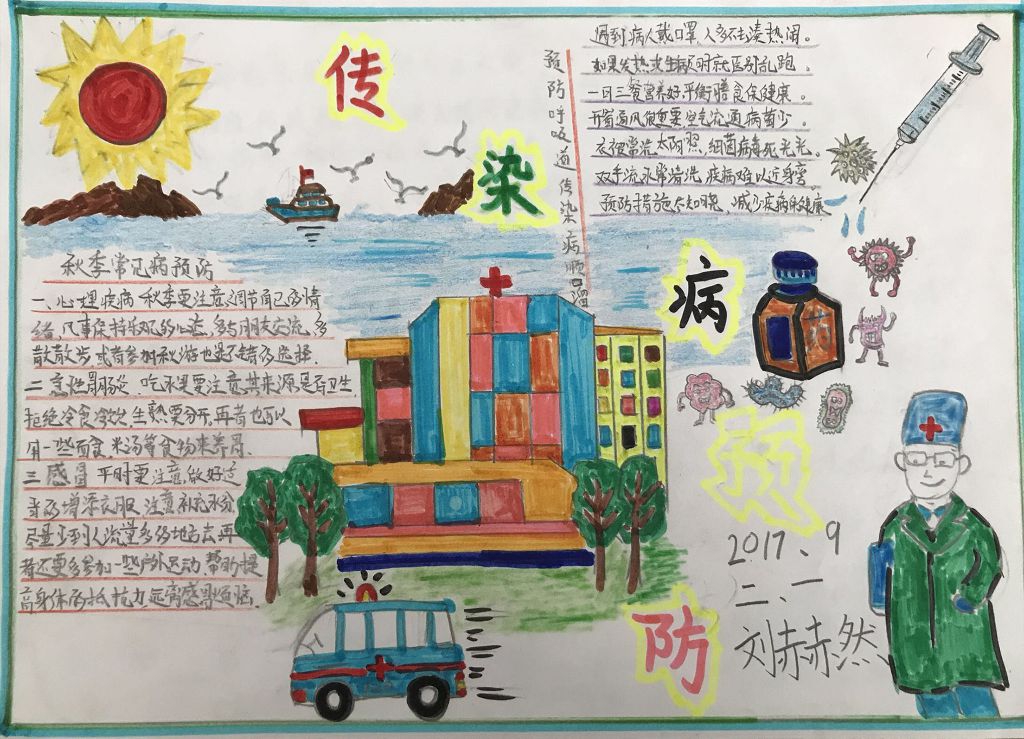 传
染
病
预
防
预防呼吸道传染病顺口溜
遇到病人戴口罩,人多不去凑热闹。
如果发热或生病及时就医别乱跑。
一日三餐营养好,平衡膳食保健康。
开窗通风很重要,空气流通病菌少。
衣被常洗太阳照,细菌病毒死光光。
双手流水常清洗,疾病难以近身旁。
预防措施大知晓,减少疾病保健康
秋季常见病预防
一、心理疾病 秋季要注意调节自己的情
绪,凡事保持乐观的心态,多与朋友交流,多
散散步或者参加秋游也是不错的选择.
二.急性胃肠炎.吃水果要注意其来源是否卫生
拒绝冷食冷饮,生熟要分开,再者也可以
用一些面食,米汤等食物来养胃.
三.感冒 平时要注意,做好适
季的增添衣服,注意补充水分
尽量少到人流量多的地方去,再
者还要多参加一些户外运动,帮助提
高身体的抵抗力,远离感冒烦恼.
药
2017、9
二、一
刘赫赫然